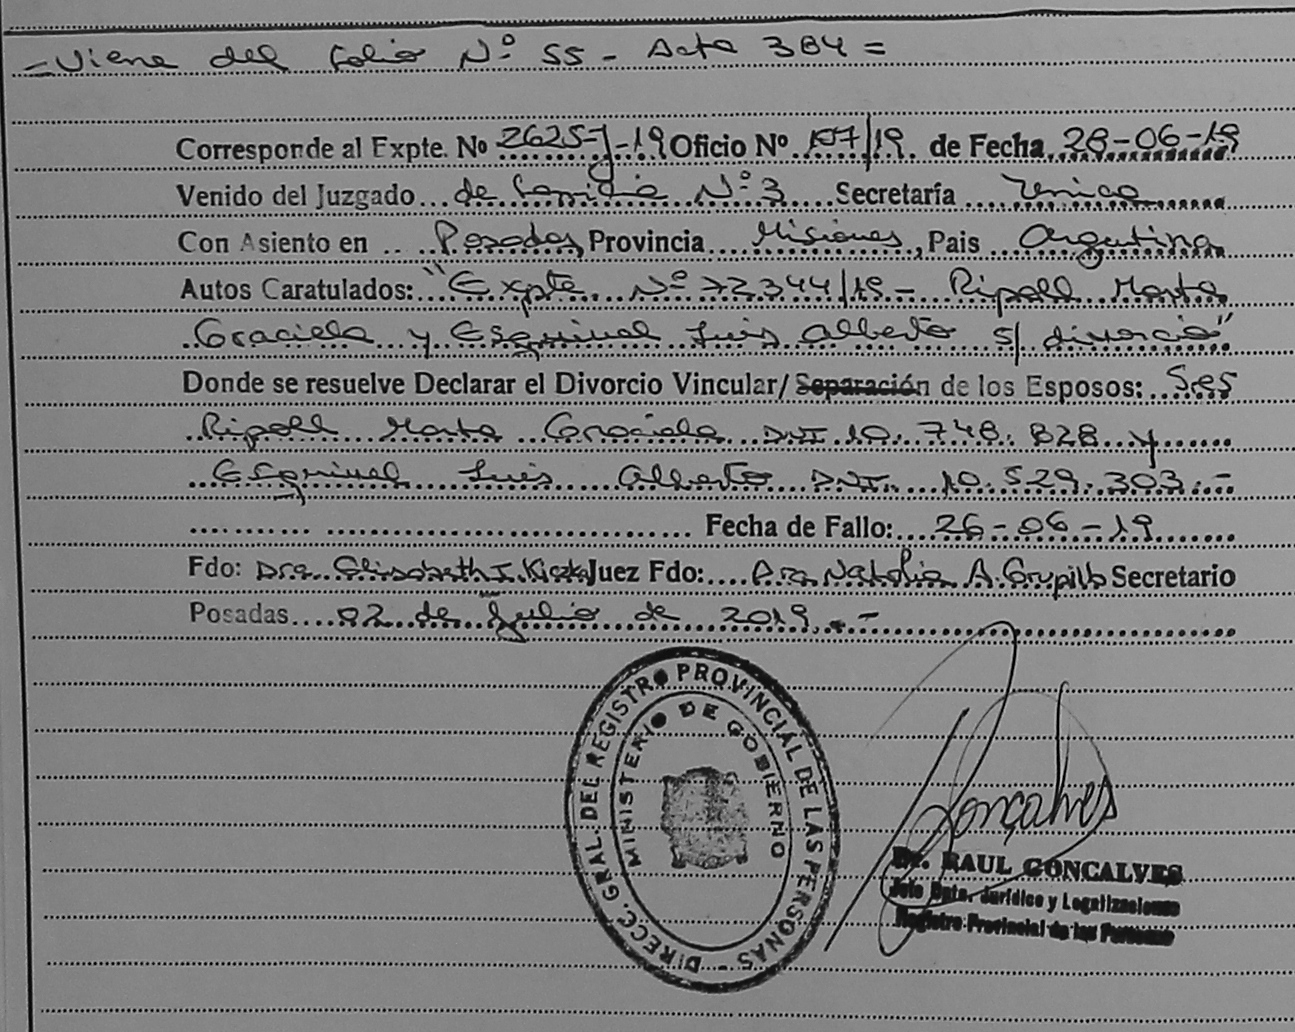 - Viene del folio Nº 55 - Acta 384 =
Corresponde al Expte. Nº 2625-J-19 Oficio Nº 107/19 de Fecha 28-06-19
Venido del Juzgado de Familia Nº 3 Secretaría Unica
Con Asiento en Posadas, Provincia Misiones, Pais Argentina
Autos Caratulados: "Expte. Nº 72344/19 - Ripoll Marta
Graciela y Esquivel Luis Alberto s/ divorcio"
Donde se resuelve Declarar el Divorcio Vincular/ Separación de los Esposos: Sres
Ripoll Marta Graciela DNI 10.748.828 y
Esquivel Luis Alberto DNI. 10.529.303.-
Fecha de Fallo: 26-06-19
Fdo: Dra. Elisabeth I. Juez Fdo: Dra Natalia A. Secretario
Posadas 02 de Julio de 2019.-
DIRECC. GRAL. DEL REGISTRO PROVINCIAL DE LAS PERSONAS -
MINISTERIO DE GOBIERNO
Gonçalves
Dr. RAUL GONCALVES
Jefe Dpto. Jurídico y Legalizaciones
Registro Provincial de las Personas